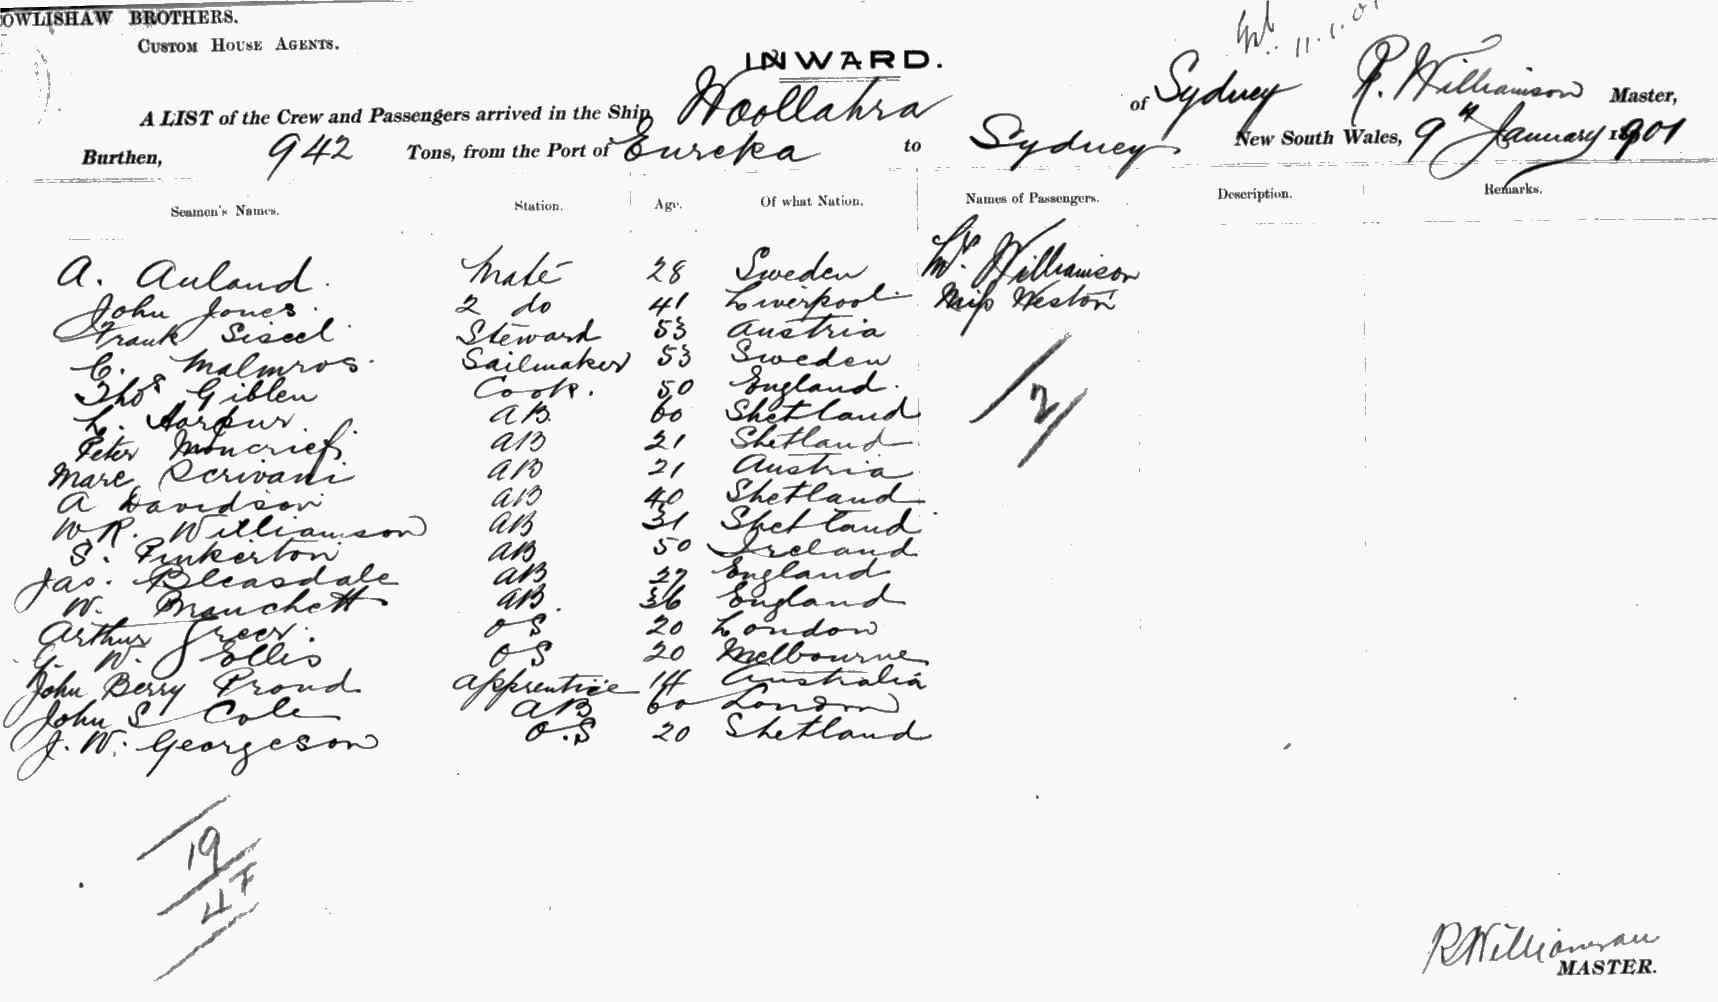 OWLISHAW BROTHERS.
CUSTOM HOUSE AGENTS.
11.1.01
INWARD.
A LIST of the Crew and Passengers arrived in the Ship Woollahra of Sydney R. Williamson Master,
Burthen, 942 Tons, from the Port of Eureka to Sydney New South Wales, 9th January 1901
Seamen's Names. Station. Age. Of what Nation. Names of Passengers. Description. Remarks.
A. Auland Mate 28 Sweden Williamson
John Jones 2 do 41 Liverpool Miss Weston
Frank Siscel Steward 53 Austria
C. Malmros Sailmaker 53 Sweden
Thos Giblen Cook. 50 England
L. Harpur AB 60 Shetland
Peter Moncrief AB 21 Shetland
Marc Scrivani AB 21 Austria
A Davidson AB 40 Shetland
W.R. Williamson AB 31 Shetland
S. Pinkerton AB 50 Ireland
Jas. Bleasdale AB 27 England
W. Manchett AB 36 England
Arthur Greer. OS 20 London
G. W. Ellis OS 20 Melbourne
John Berry Proud Apprentice 14 Australia
John S Cole AB 60 London
J. W. Georgeson O.S 20 Shetland
2
19
4 F
R Williamson
MASTER.